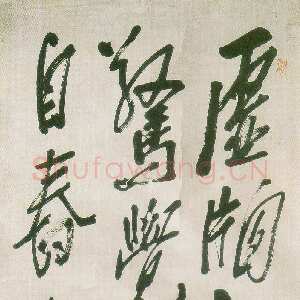 虛牖
驚
自春
Shufawang.CN